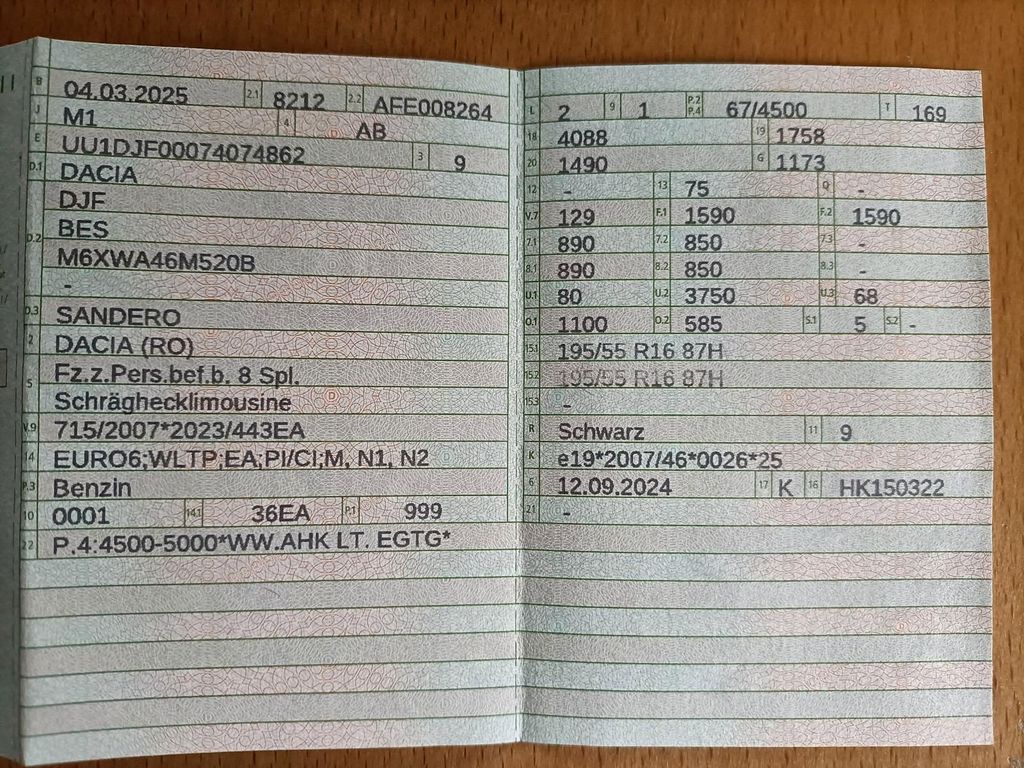 B 04.03.2025 2.1 8212 2.2 AFE008264
J M1 4 AB
E UU1DJF00074074862 3 9
D.1 DACIA
DJF
D.2 BES
M6XWA46M520B
-
D.3 SANDERO
2 DACIA (RO)
5 Fz.z.Pers.bef.b. 8 Spl.
Schräghecklimousine
V.9 715/2007*2023/443EA
14 EURO6;WLTP;EA;PI/CI;M, N1, N2
P.3 Benzin
10 0001 14.1 36EA P.1 999
22 P.4:4500-5000*WW.AHK LT. EGTG*
L 2 9 1 P.2 P.4 67/4500 T 169
18 4088 19 1758
20 1490 G 1173
12 - 13 75 Q -
V.7 129 F.1 1590 F.2 1590
7.1 890 7.2 850 7.3 -
8.1 890 8.2 850 8.3 -
U.1 80 U.2 3750 U.3 68
O.1 1100 O.2 585 S.1 5 S.2 -
15.1 195/55 R16 87H
15.2 195/55 R16 87H
15.3 -
R Schwarz 11 9
K e19*2007/46*0026*25
6 12.09.2024 17 K 16 HK150322
21 -